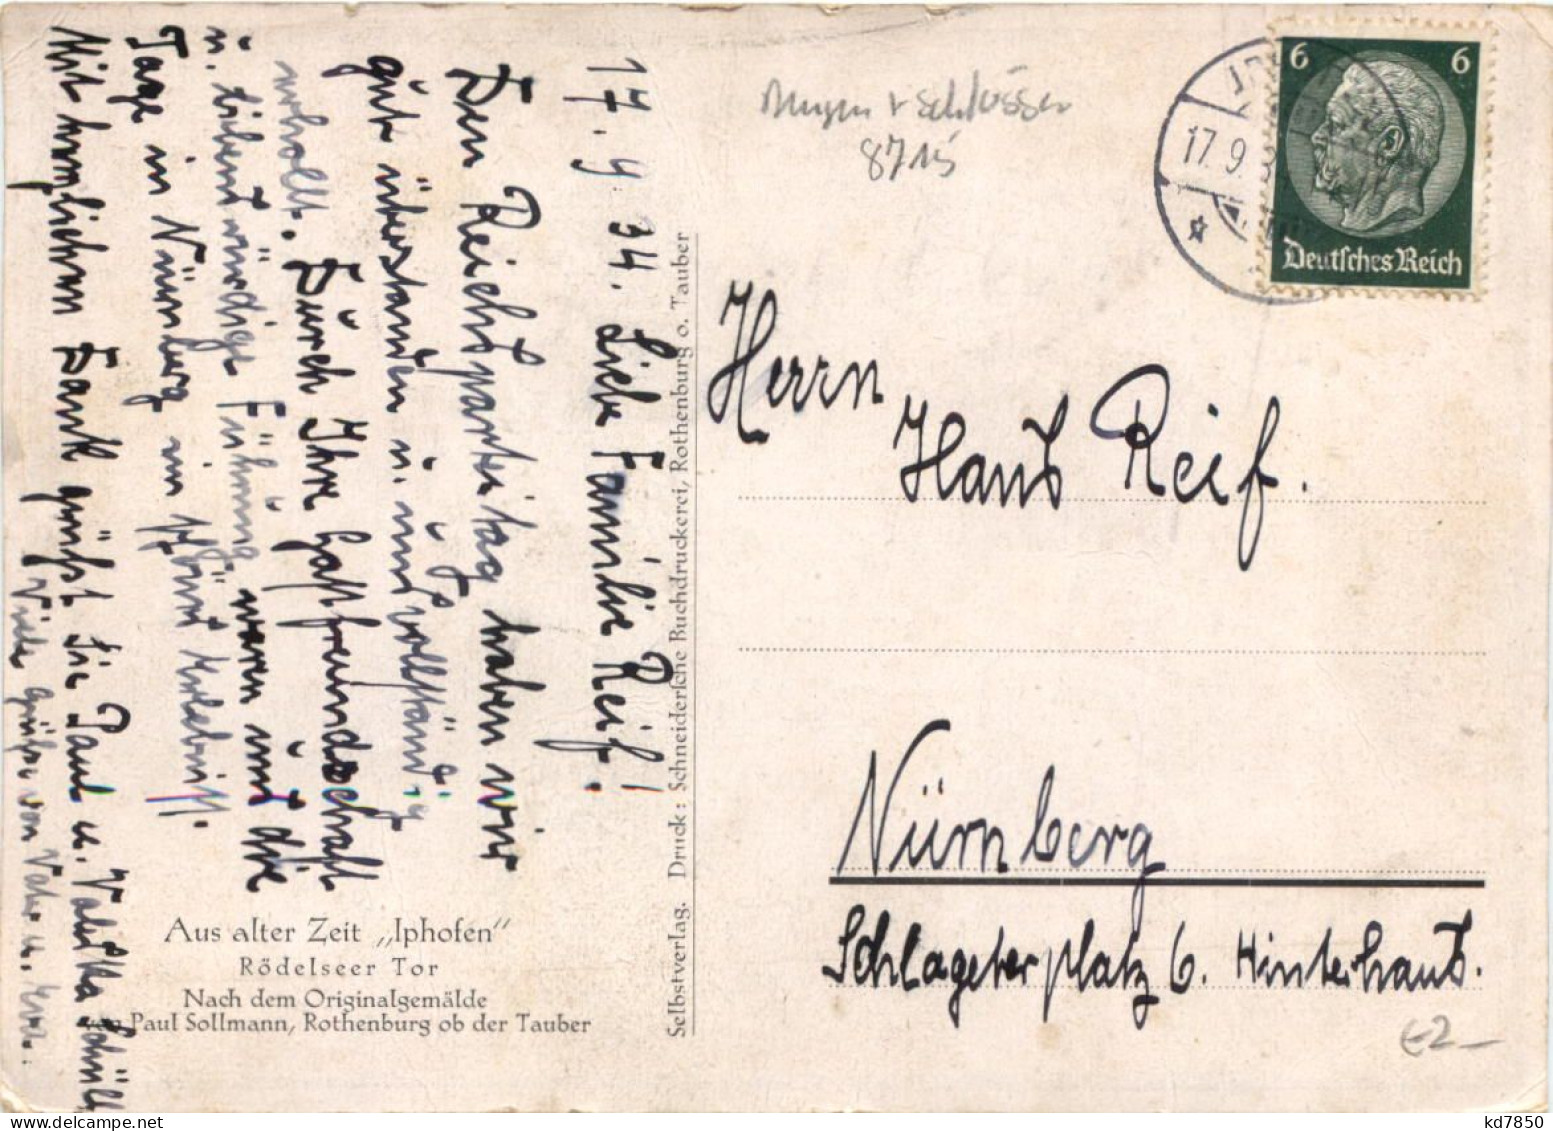 17. 9. 34. Liebe Familie Reif!
Den Reichsparteitag haben wir
gut überstanden u. uns vollständig
erholt. Durch Ihre Gastfreundschaft
u. liebenswürdige Führung waren uns die
Tage in Nürnberg ein schönes Erlebnis.
Mit herzlichem Dank grüßt Sie Paul u.
Viele Grüße von Vater u.
Aus alter Zeit „Iphofen“
Rödelseer Tor
Nach dem Originalgemälde
von Paul Sollmann, Rothenburg ob der Tauber
Selbstverlag. Druck: Schneidersche Buchdruckerei, Rothenburg o. Tauber
Schlösser
8715
17. 9.
6 6
Deutsches Reich
Herrn
Hans Reif.
Nürnberg
Schlageterplatz 6. Hinterhaus.
€2–
kd7850